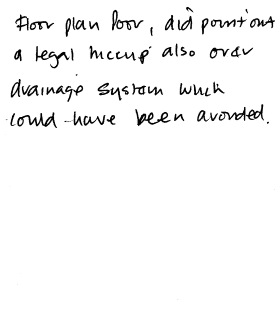 Floor plan poor, did point out
a legal hiccup also over
drainage system which
could have been avoided.